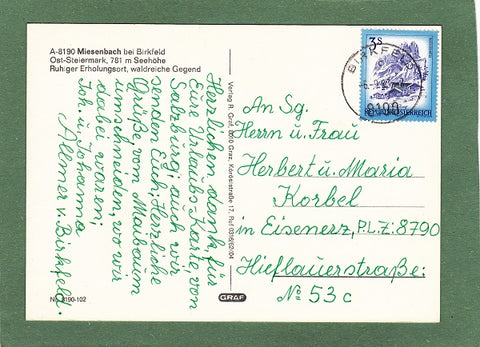 A-8190 Miesenbach bei Birkfeld
Ost-Steiermark, 781 m Seehöhe
Ruhiger Erholungsort, waldreiche Gegend
Herzlichen dank, für
Eure Urlaubs Karte, von
Salzburg: auch wir
senden Euch, Herzliche
Grüße, vom Maibaum
umschneiden, wo wir
dabei waren:
Joh. u. Johanna
Allmer v. Birkfeld.
Nr. 8190-102
Verlag R. Graf, 8020 Graz, Karlauerstraße 17, Ruf 0316/52/04
GRAF
3s
BIRKFELD
8190
REPUBLIK ÖSTERREICH
An Sg.
Herrn u. Frau
Herbert u. Maria
Korbel
in Eisenerz, P.L.Z: 8790
Hieflauerstraße:
No 53 c